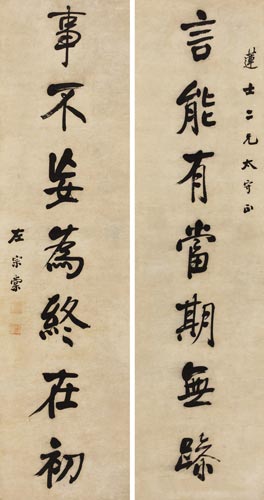 蓮士二兄太守正
言能有當期無
事不妄為終在初
左宗棠